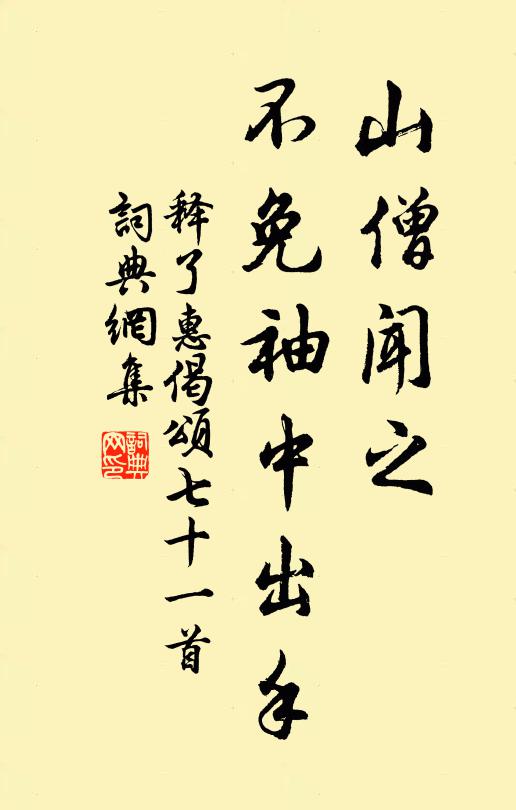 山僧闻之
不免袖中出手
释了惠偈颂七十一首
詞典網集
詞典网印